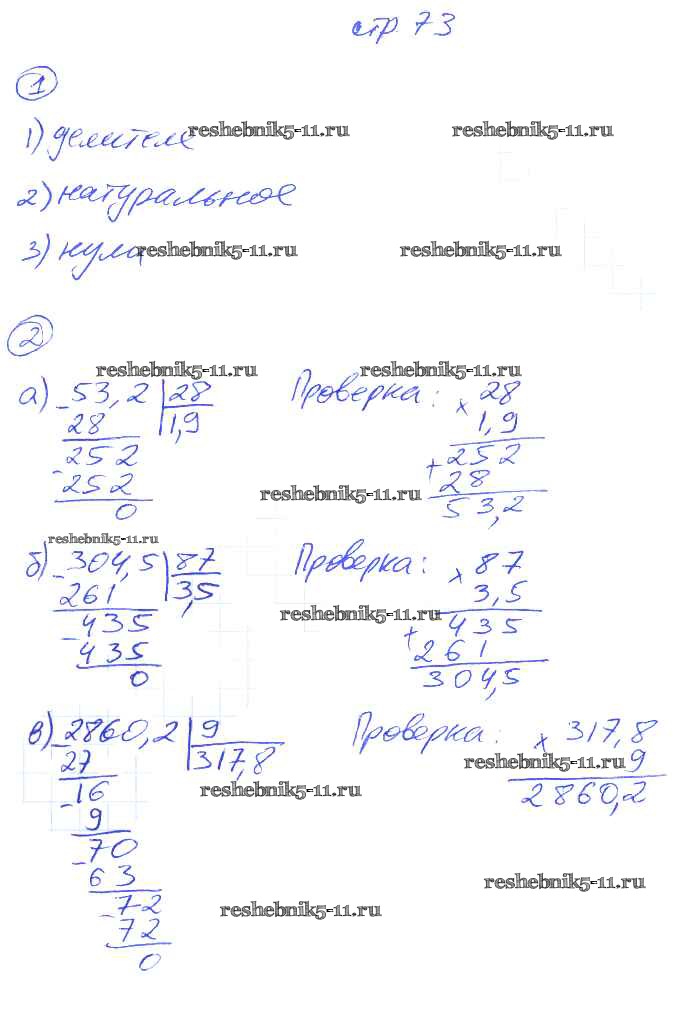 стр 73
1
1) делителе reshebnik5-11.ru reshebnik5-11.ru
2) натуральное
3) нула reshebnik5-11.ru reshebnik5-11.ru
2
reshebnik5-11.ru reshebnik5-11.ru
а) - 53,2 | 28 Проверка: x 28
28 1,9 1,9
- 252 + 252
252 reshebnik5-11.ru 28
0 53,2
reshebnik5-11.ru
б) - 304,5 | 87 Проверка: x 87
261 3,5 reshebnik5-11.ru 3,5
- 435 + 435
435 261
0 304,5
в) - 2860,2 | 9 Проверка: x 317,8
27 317,8 reshebnik5-11.ru 9
- 16 reshebnik5-11.ru 2860,2
9
- 70
63 reshebnik5-11.ru
- 72 reshebnik5-11.ru
72
0